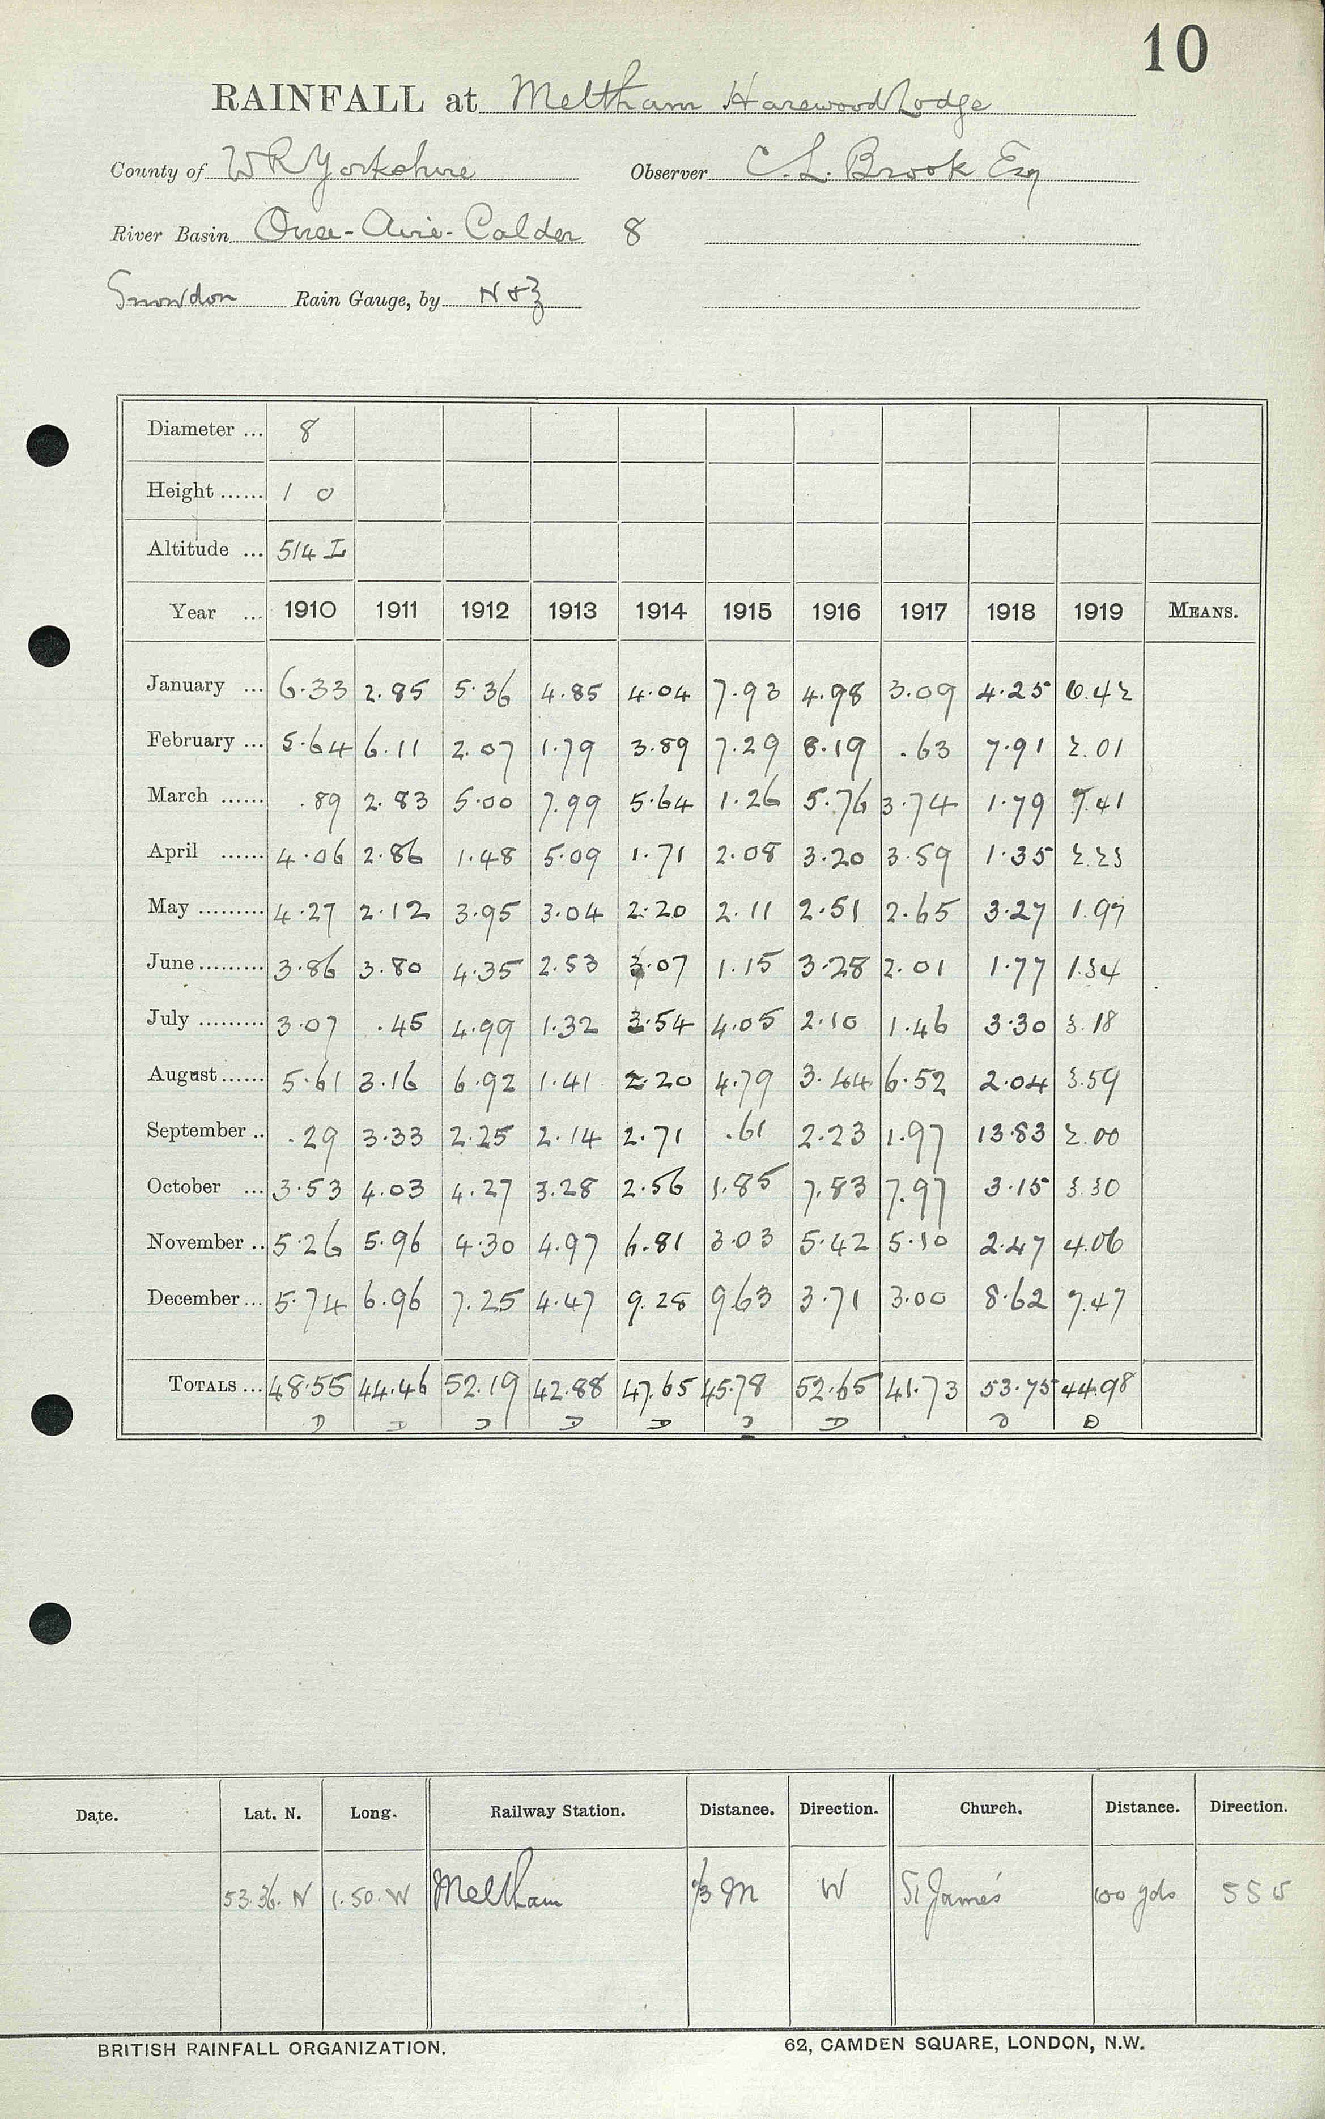 10
RAINFALL at Meltham Harewood Lodge
County of W R Yorkshire Observer C. L. Brook Esq
River Basin Ouse-Aire-Calder 8
Snowdon Rain Gauge, by N & Z
Diameter ... 8
Height ...... 1 0
Altitude ... 514 I
Year ... 1910 1911 1912 1913 1914 1915 1916 1917 1918 1919 MEANS.
January ... 6.33 2.85 5.36 4.85 4.04 7.93 4.98 3.09 4.25 6.42
February ... 5.64 6.11 2.07 1.79 3.89 7.29 8.19 .63 7.91 2.01
March ...... .89 2.83 5.00 7.99 5.64 1.26 5.76 3.74 1.79 7.41
April ...... 4.06 2.86 1.48 5.09 1.71 2.08 3.20 3.59 1.35 2.23
May ......... 4.27 2.12 3.95 3.04 2.20 2.11 2.51 2.65 3.27 1.97
June ......... 3.86 3.80 4.35 2.53 3.07 1.15 3.28 2.01 1.77 1.34
July ......... 3.07 .45 4.99 1.32 3.54 4.05 2.10 1.46 3.30 3.18
August ...... 5.61 3.16 6.92 1.41 2.20 4.79 3.44 6.52 2.04 3.59
September .. .29 3.33 2.25 2.14 2.71 .61 2.23 1.97 13.83 2.00
October ... 3.53 4.03 4.27 3.28 2.56 1.85 7.83 7.97 3.15 3.30
November .. 5.26 5.96 4.30 4.97 6.81 3.03 5.42 5.10 2.47 4.06
December ... 5.74 6.96 7.25 4.47 9.28 9.63 3.71 3.00 8.62 7.47
TOTALS ... 48.55 44.46 52.19 42.88 47.65 45.78 52.65 41.73 53.75 44.98
D D D D D D D D D
Date. Lat. N. Long. Railway Station. Distance. Direction. Church. Distance. Direction.
53.36. N 1.50. W Meltham 1/3 M W St James' 100 yds
BRITISH RAINFALL ORGANIZATION. 62, CAMDEN SQUARE, LONDON, N.W.